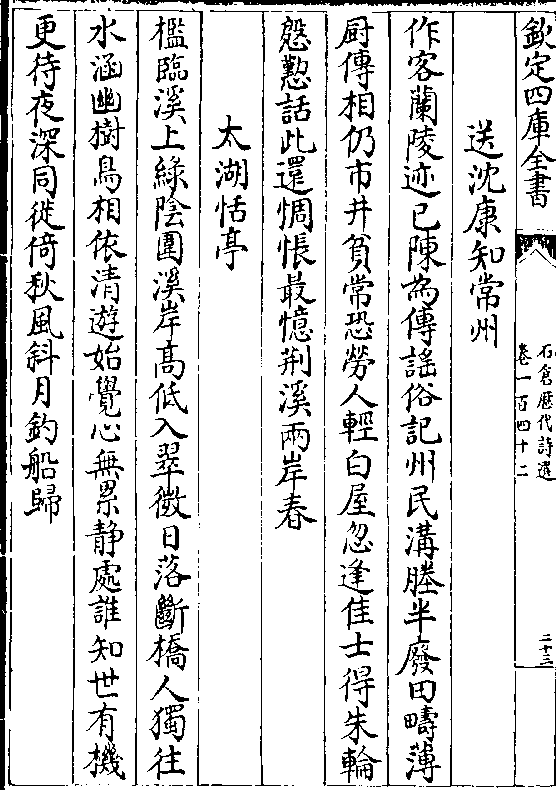 欽定四庫全書
石倉歴代詩選
卷一百四十二
二十三
送沈康知常州
作客蘭陵迹已陳為傳謡俗記州民溝塍半廢田疇薄
厨傳相仍市井貧常恐勞人輕白屋忽逢佳士得朱輪
慇懃話此還惆悵最憶荆溪兩岸春
太湖恬亭
檻臨溪上綠陰圍溪岸高低入翠微日落斷橋人獨往
水涵幽樹鳥相依清遊始覺心無累静處誰知世有機
更待夜深同徙倚秋風斜月釣船歸